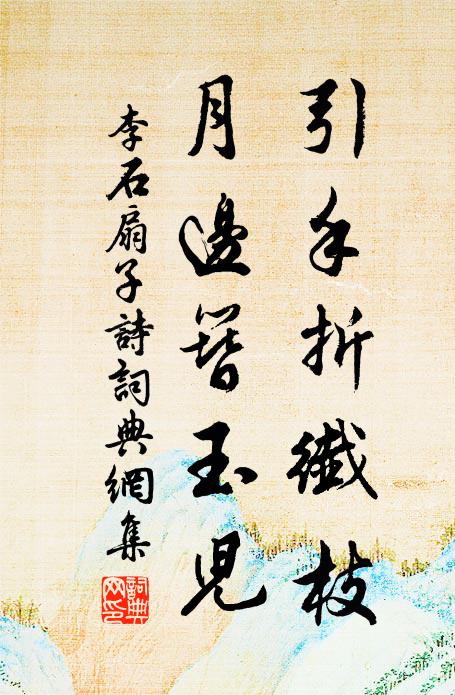 引手折纖枝
月邊簪玉兒
李石扇子詩詞典網集
詞典